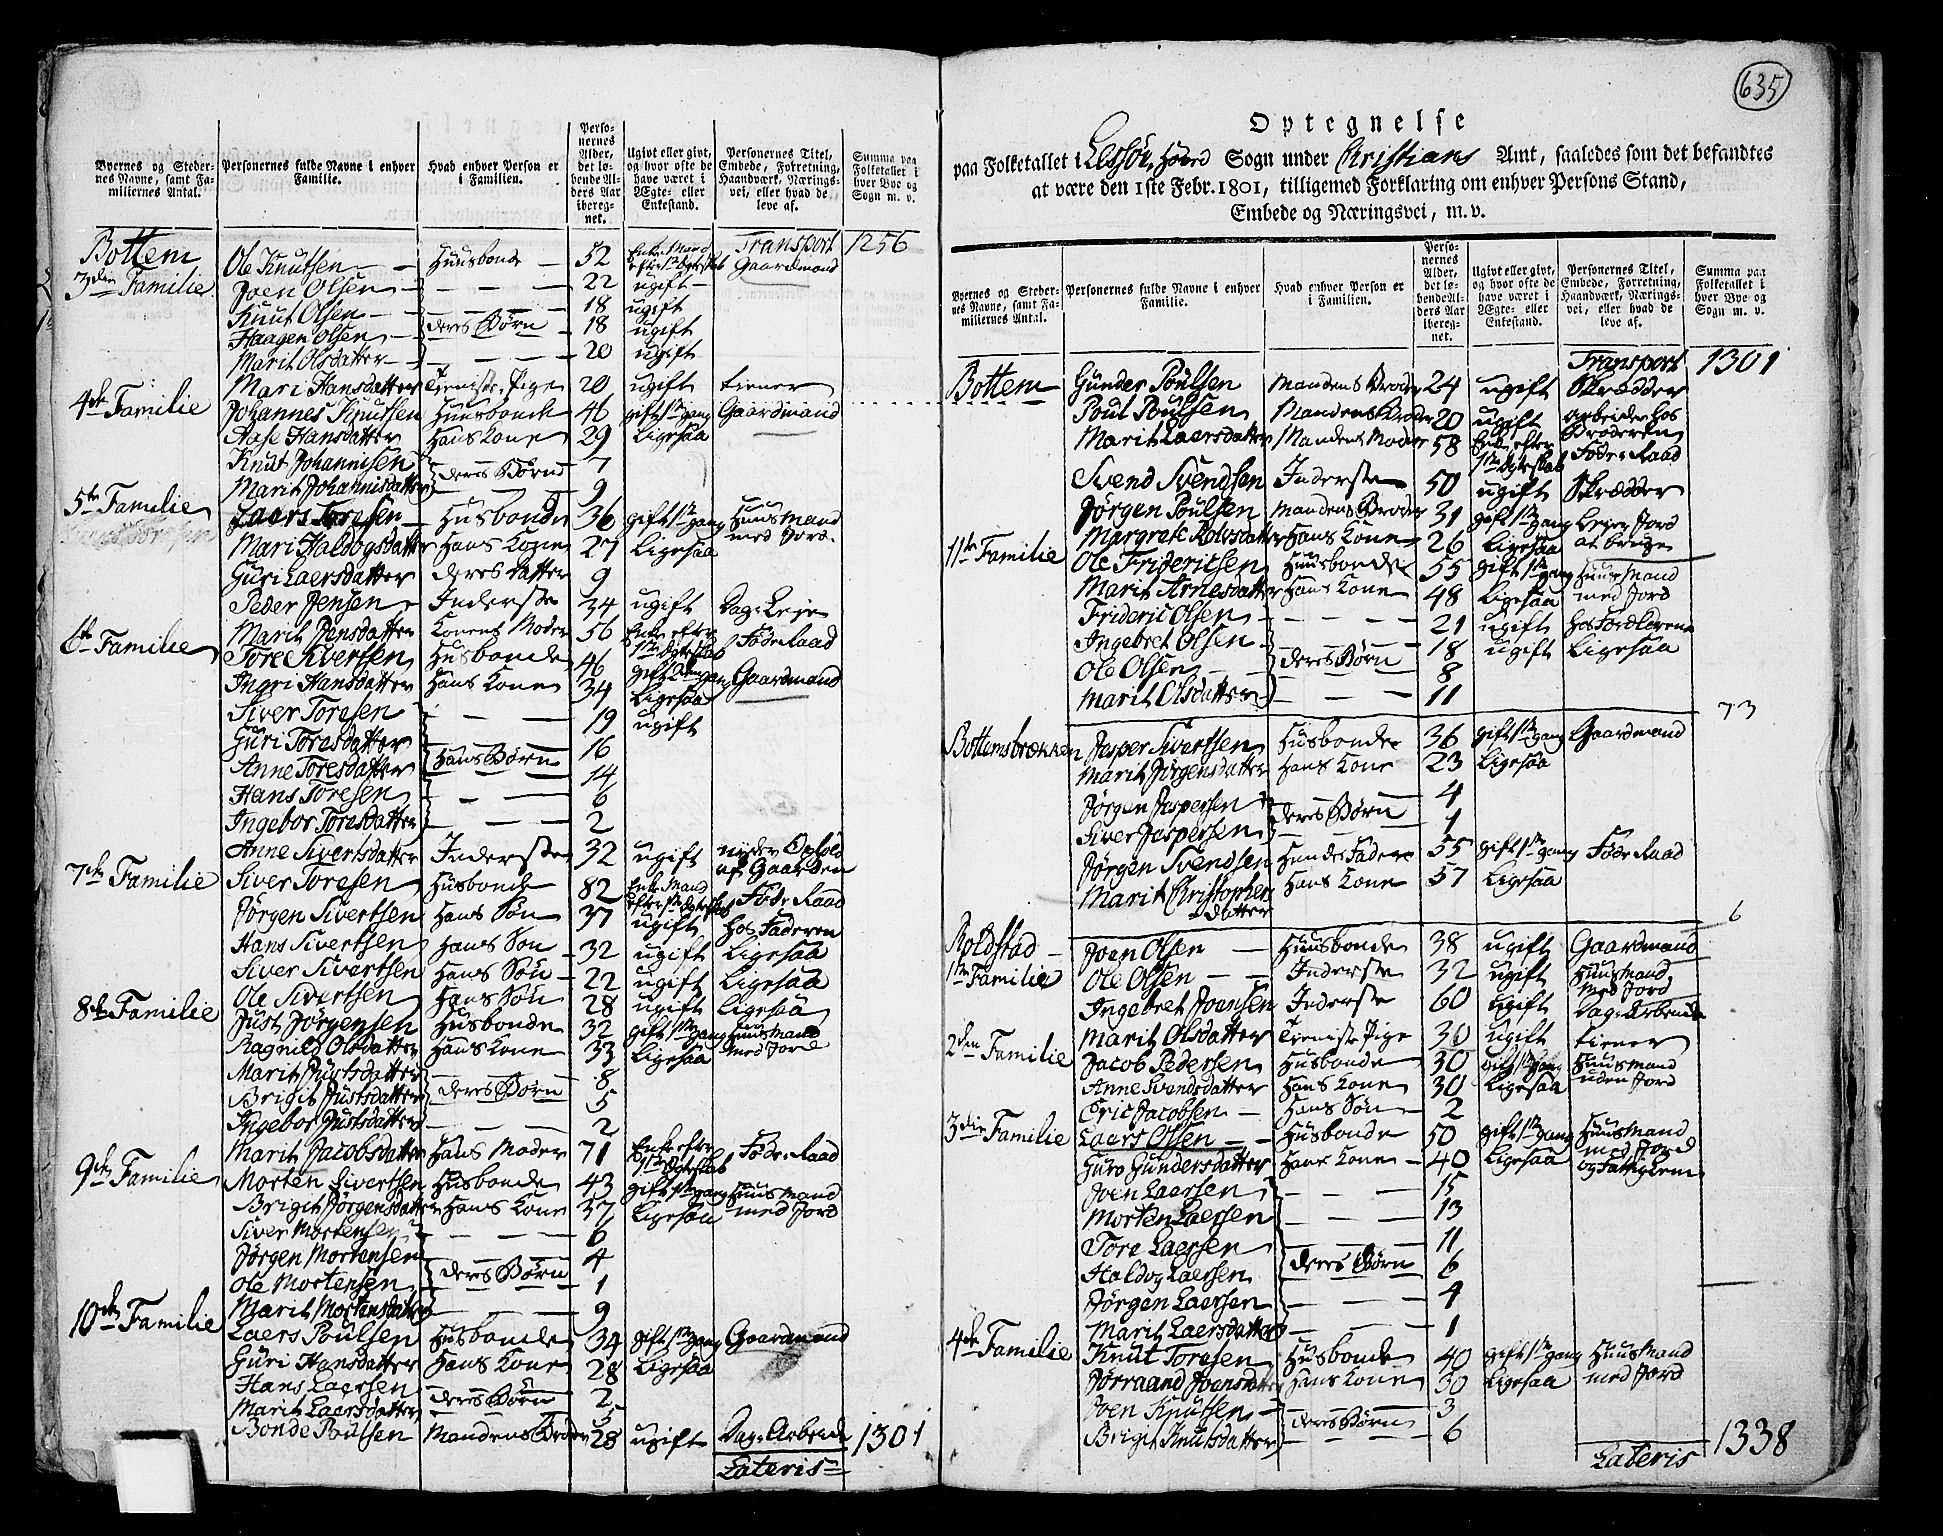 635
Byernes og Steder-
nes Navne, samt Fa-
miliernes Antal.
Personernes fulde Navne i enhver
Familie.
Hvad enhver Person er
i Familien.
Perso-
nernes
Alder,
det lø-
bende Al-
ders Aar
iberegnet.
Ugivt eller givt,
og hvor ofte de
have været i
Ægte- eller
Enkestand.
Personernes Titel,
Embede, Forretning,
Haandværk, Nærings-
vei, eller hvad de
leve af.
Summa paa
Folketallet i
hver Bye og
Sogn m. v.
Bottem Transport 1256
3die Familie Ole Knutsen Huusbonde 52 Enke Mand efter 1te Ægteskab Gaardmand
Joen Olsen 22 ugift
Knut Olsen 18 ugift
Haagen Olsen deres Børn 18 ugift
Marit Olsdatter 20 ugift
Mari Hansdatter Tieniste Pige 20 ugift tiener
4de Familie Johannes Knutsen Huusbonde 46 gift 1te gang Gaardmand
Aase Hansdatter Hans Kone 29 Ligesaa
Knut Johannisen deres Børn 7
Marit Johannisdatter 9
5te Familie Laers Toresen Husbonde 36 gift 1te gang Huusmand med Jord
Mari Haldogsdatter Hans Kone 27 Ligesaa
Guri Laersdatter deres datter 9
Peder Jensen Inderste 34 ugift Dag Leje
Marit Jensdatter Konens Moder 56 Enke efter 1te Ægteskab Føde Raad
6te Familie Tore Sivertsen Husbonde 46 gift 2den gang Gaardmand
Ingri Hansdatter Hans Kone 34 Ligesaa
Siver Toresen 19 ugift
Guri Toresdatter 16
Anne Toresdatter Hans Børn 14
Hans Toresen 6
Ingebor Toresdatter 2
Anne Sivertsdatter Inderste 32 ugift nyder Ophold af Gaarden
7de Familie Siver Toresen Husbonde 82 Enke Mand efter 1te Ægteskab Føde Raad
Jørgen Sivertsen Hans Søn 37 ugift hos Faderen
Hans Sivertsen Hans Søn 32 ugift Ligesaa
Siver Sivertsen Hans Søn 22 ugift Ligesaa
Ole Sivertsen Hans Søn 28 ugift Ligesaa
8de Familie Just Jørgensen Husbonde 32 gift 1te gang Huusmand med Jord
Ragnild Olsdatter Hans Kone 33 Ligesaa
Marit Justsdatter 8
Brigit Justsdatter deres Børn 5
Ingebor Justsdatter 2
Marit Jacobsdatter Hans Moder 71 Enke efter 1te Ægteskab Føde Raad
9de Familie Morten Sivertsen Husbonde 43 gift 1te gang Huusmand med Jord
Brigit Jørgensdatter Hans Kone 37 Ligesaa
Siver Mortensen 6
Jørgen Mortensen 4
Ole Mortensen deres Børn 1
Marit Mortensdatter 9
10de Familie Laers Poulsen Husbonde 34 gift 1te gang Gaardmand
Guri Hansdatter Hans Kone 28 Ligesaa
Hans Laersen deres Børn 2
Marit Laersdatter 5
Bonde Poulsen Mandens Broder 28 ugift Dag Arbeide 1301
Lateris
Optegnelse
paa Folketallet i Lessøe Hoved Sogn under Christians Amt, saaledes som det befandtes
at være den 1ste Febr. 1801, tilligemed Forklaring om enhver Persons Stand,
Embede og Næringsvei, m. v.
Byernes og Steder-
nes Navne, samt Fa-
miliernes Antal.
Personernes fulde Navne i enhver
Familie.
Hvad enhver Person er
i Familien.
Perso-
nernes
Alder,
det lø-
bende Al-
ders Aar
iberegnet.
Ugivt eller givt,
og hvor ofte de
have været i
Ægte- eller
Enkestand.
Personernes Titel,
Embede, Forretning,
Haandværk, Nærings-
vei, eller hvad de
leve af.
Summa paa
Folketallet i
hver Bye og
Sogn m. v.
Transport 1301
Bottem Gunder Poulsen Mandens Broder 24 ugift Skrædder
Poul Poulsen Mandens Broder 20 ugift arbeider hos Broderen
Marit Laersdatter Mandens Moder 58 Enke efter 1te Ægteskab Føde Raad
Svend Svendsen Inderste 50 ugift Skrædder
Jørgen Poulsen Mandens Broder 31 gift 1te gang Lejer Jord at bruge
Margrete Rolvsdatter Hans Kone 26 Ligesaa
11te Familie Ole Fridericsen Huusbonde 55 gift 1te gang Huusmand med Jord
Marit Arnesdatter Hans Kone 48 Ligesaa
Frideric Olsen 21 ugift hos Forældrene
Ingebret Olsen 18 ugift Ligesaa
Ole Olsen deres Børn 8
Marit Olsdatter 11
73
Bottemsbrækken Jesper Sivertsen Husbonde 36 gift 1te gang Gaardmand
Marit Jørgensdatter Hans Kone 23 Ligesaa
Jørgen Jespersen deres Børn 4
Siver Jespersen 1
Jørgen Svendsen Hendes Fader 55 gift 1te gang Føde Raad
Marit Christophers datter Hans Kone 57 Ligesaa
6
Roldstad Joen Olsen Huusbonde 38 ugift Gaardmand
1te Familie Ole Olsen Inderste 32 ugift Huusmand med Jord
Ingebret Joensen Inderste 60 ugift Dag Arbeide
Marit Olsdatter Tieniste Pige 30 ugift tiener
2den Familie Jacob Pedersen Husbonde 30 gift 1te gang Huusmand uden Jord
Anne Svendsdatter Hans Kone 30 Ligesaa
Eric Jacobsen Hans Søn 2
3die Familie Laers Olsen Husbonde 50 gift 1te gang Huusmand med Jord og Fattig Lem
Guro Gundersdatter Hans Kone 40 Ligesaa
Joen Laersen 15
Morten Laersen 13
Tore Laersen 11
Haldog Laersen deres Børn 6
Jørgen Laersen 4
Marit Laersdatter 1
4de Familie Knut Toresen Husbonde 40 gift 1te gang Huusmand med Jord
Jørraand Joensdatter Hans Kone 30 Ligesaa
Joen Knutsen deres Børn 3
Brigit Knutsdatter 6
1338
Lateris